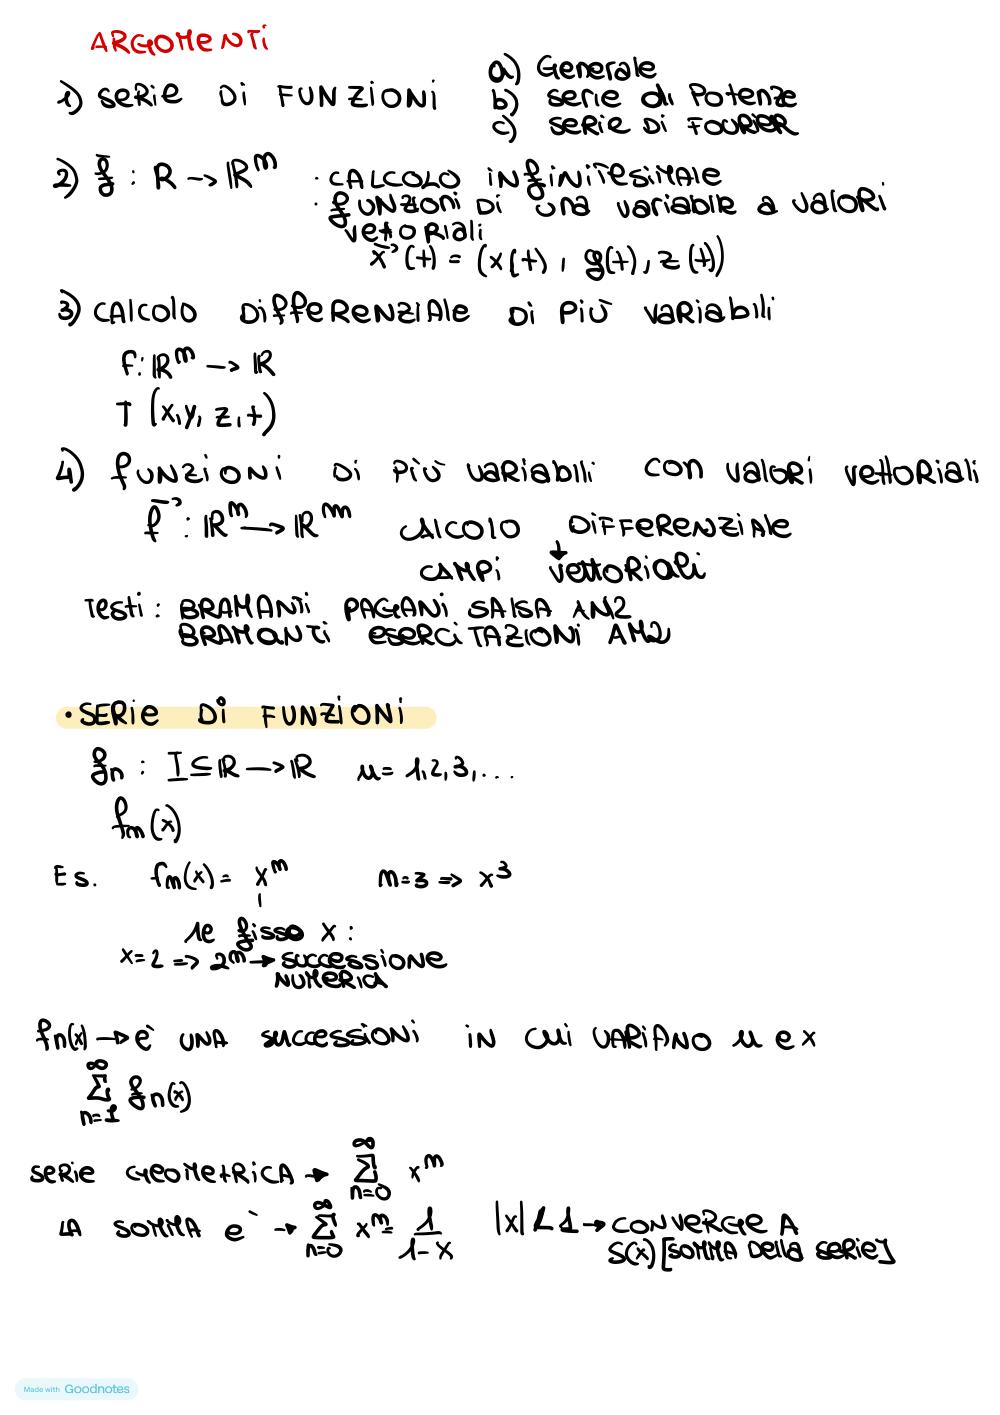 ARGOMENTI
1) serie DI FUNZIONI
a) Generale
b) serie di Potenze
c) serie DI FOURIER
2) f̄ : R → ℝᵐ · CALCOLO infinitesimale
· funzioni DI una variabile a valori
vettoriali
x⃗(t) = (x(t), y(t), z(t))
3) CALCOLO DiffeRENZIAle DI PIÙ VARIabili
f: ℝᵐ → ℝ
T (x, y, z, t)
4) fUNZIONI DI PIÙ VARIABILI con valori vettoriali
f⃗ : ℝᵐ → ℝᵐ CALCOLO DIFFERENZIALE
CAMPI vettoriali
Testi : BRAMANTI PAGANI SALSA AM2
BRAMANTI eserciTAZIONI AM2
· SERIE DI FUNZIONI
fn : I ⊆ ℝ → ℝ n = 1, 2, 3, ...
fm(x)
Es. fm(x) = xᵐ m=3 => x³
se fisso x :
x=2 => 2ᵐ → successione
NUMERICA
fn(x) → è UNA successioni in cui VARIANO n e x
∞ Σ n=1 fn(x)
serie GEOMETRICA → ∞ Σ n=0 xᵐ
LA SOMMA e` → ∞ Σ n=0 xᵐ = 1/(1-x) |x| < 1 → CONVERGE A
S(x) [SOMMA Della serie]
Made with Goodnotes